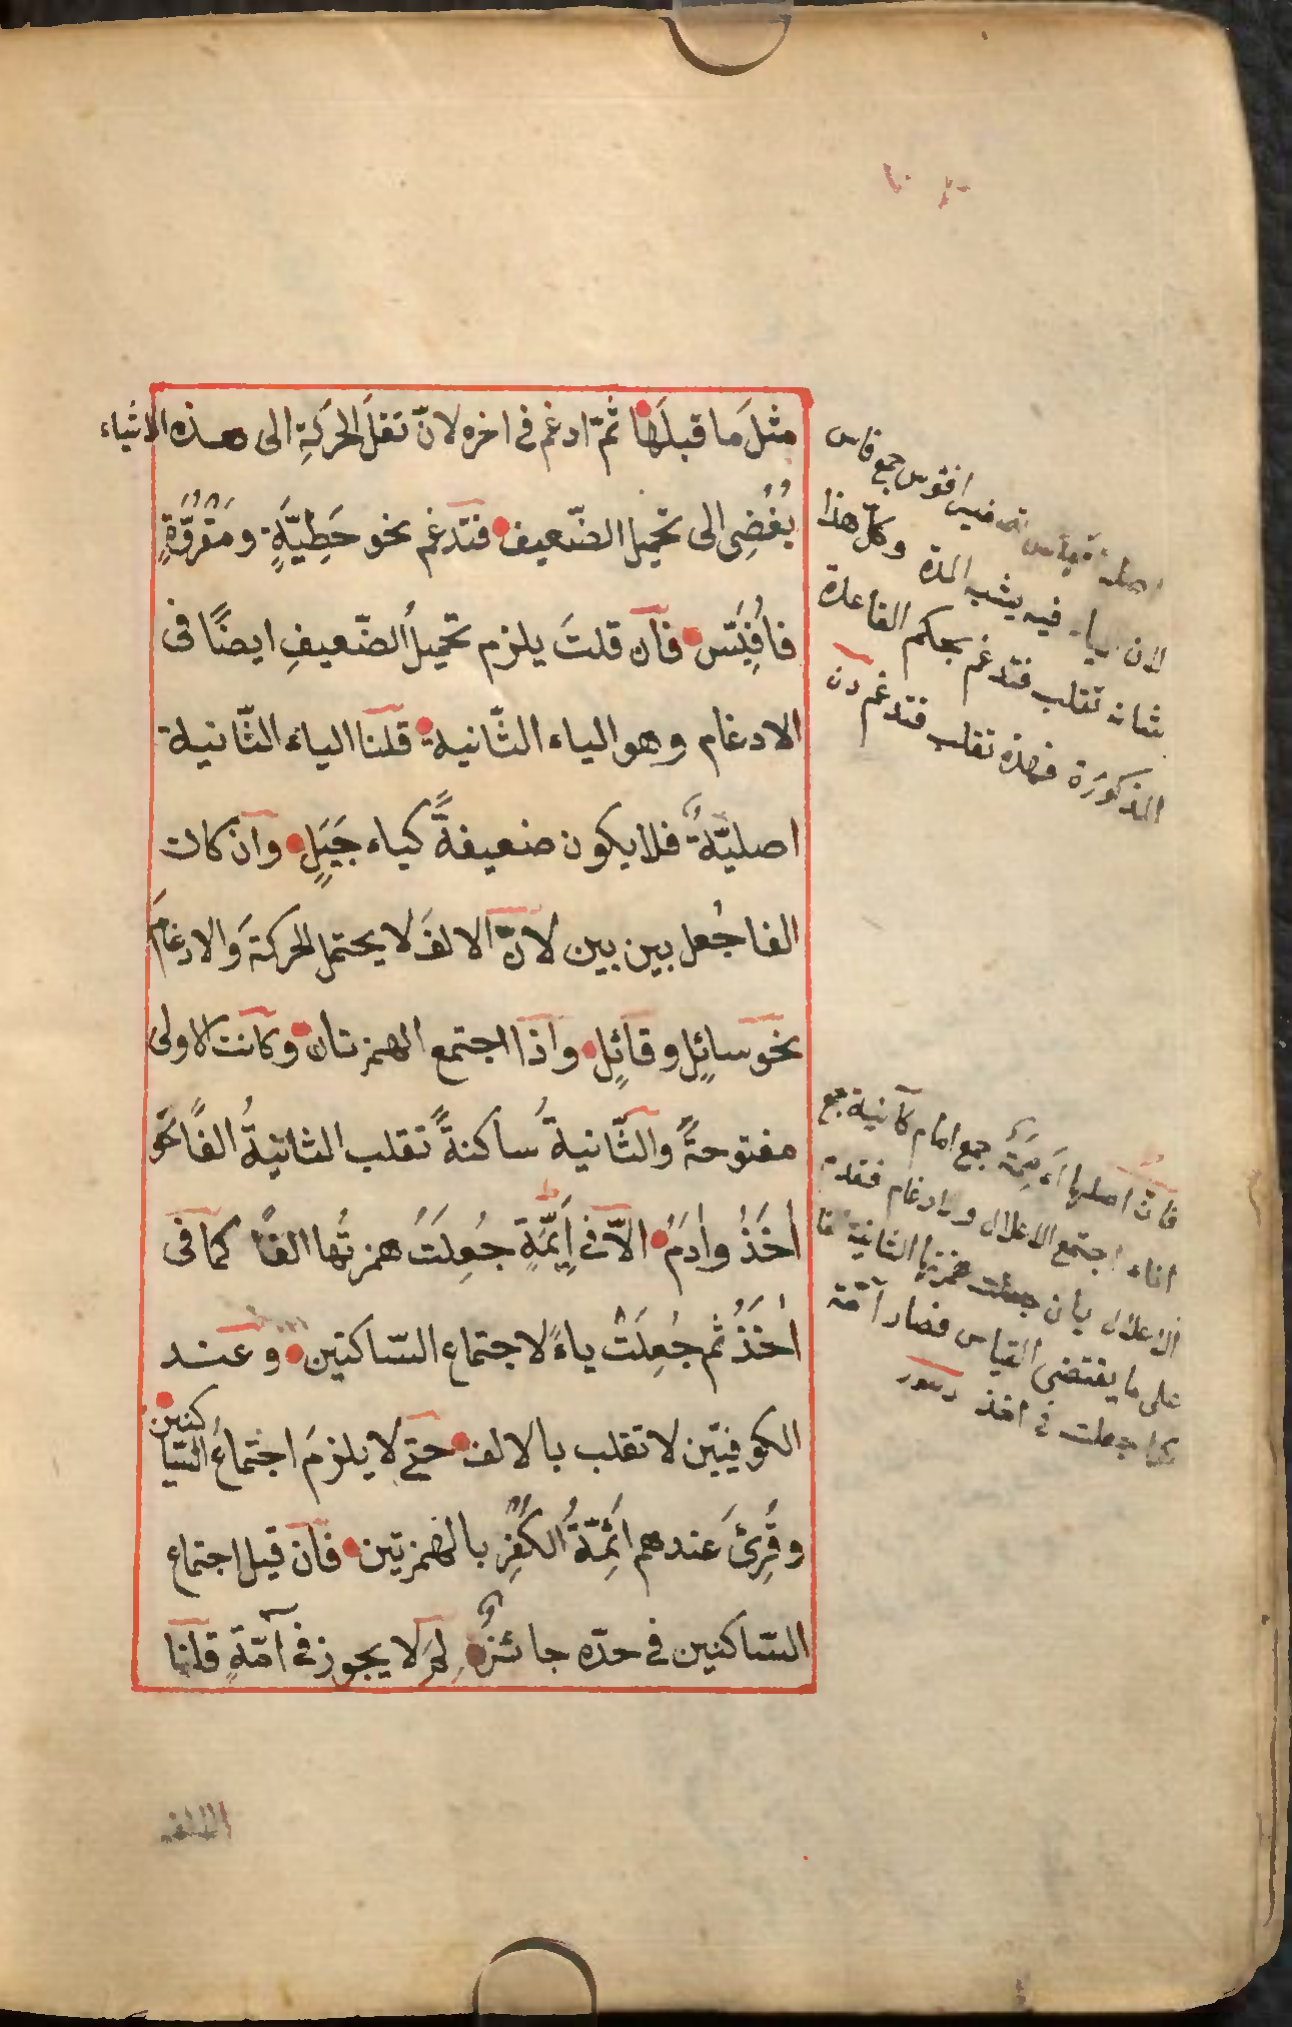 مثلَ ما قبلَها ثمّ ادغم فى اخره لانّ نقلَ الحركةِ الى هذه الاشياء
يُفْضِى الى تحميل الضّعيف فتدغم نحو خَطِيَّةٍ ومَقْرُوَّةٍ
فاُفَيِّسٌ فان قلتَ يلزم تحميلُ الضّعيفِ ايضًا فى
الادغام وهو الياء الثّانية قلنا الياء الثّانية
اصليّةٌ فلا يكون ضعيفةً كياء جَيَلٍ وان كان
الفا جُعل بين بين لانّ الالفَ لا يحتمل الحركةَ والادغامَ
نحو سائِلٍ وقائِلٍ واذا اجتمع الهمزتان وكانت الاولى
مفتوحةً والثّانيةُ ساكنةً تقلب الثانيةُ الفًا نحو
اٰخَذُ واٰدَمُ الّا فى اَيِمَّةٍ جُعِلَتْ همزتُها الفًا كما فى
اٰخَذُ ثم جُعِلَتْ ياءً لاجتماع السّاكنين وعند
الكوفييّن لا تقلب بالالف حتّى لا يلزمَ اجتماعُ السّاكنين
وقُرِئَ عندهم اَئِمَّةُ الكُفْرِ بالهمزتين فان قيل اجتماع
السّاكنين فى حدّه جائزٌ لِمَ لا يجوز فى آمّةٍ قلنا
افئوس جمع فاس
لان ياء فيه يشبه المدة وكلّ هذا
شانه تقلب فتدغم بحكم القاعدة
المذكورة فهذه تقلب فتدغم
فانّ اصلها أَءْمِمَة جمع امام كآنية جمع
اناء اجتمع الاعلال والادغام فقدم
الاعلال بان جعلت همزتها الثانية الفا
على ما يقتضى القياس فصار آمّة
كما جعلت فى اخذ
الالف